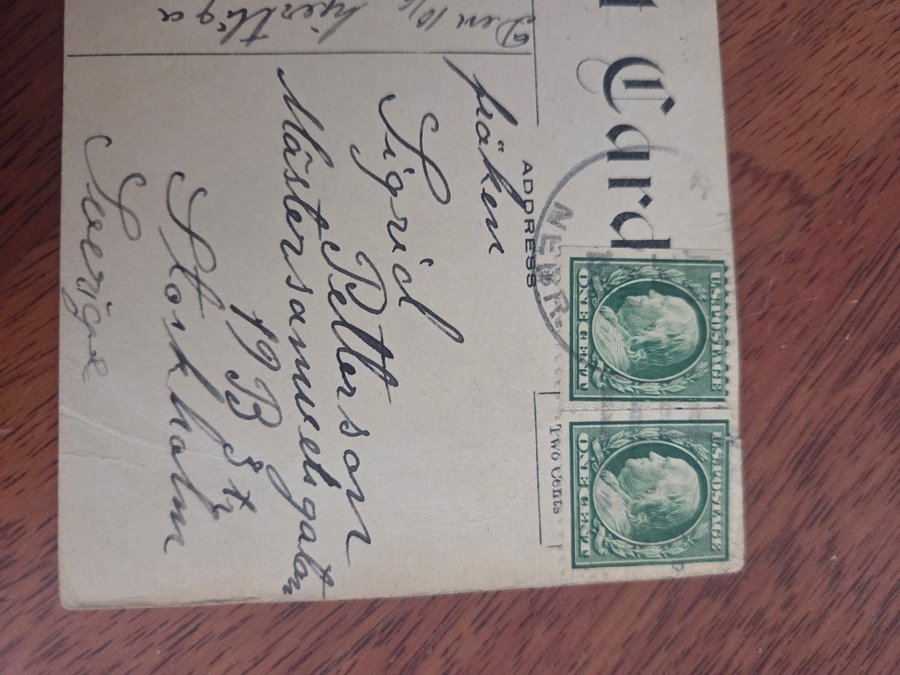 Card
Den 10/
hjertliga
ADDRESS
NEBR.
U.S. POSTAGE
ONE CENT
U.S. POSTAGE
ONE CENT
Two Cents
fröken
Sigrid Petterson
Mästersamuelsgatan
19 B 3 tr
Stockholm
Sverige